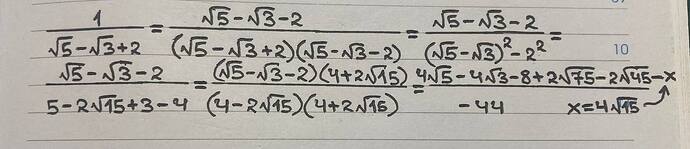 1/(√5-√3+2) = (√5-√3-2)/((√5-√3+2)(√5-√3-2)) = (√5-√3-2)/((√5-√3)²-2²) =
(√5-√3-2)/(5-2√15+3-4) = ((√5-√3-2)(4+2√15))/((4-2√15)(4+2√15)) = (4√5-4√3-8+2√75-2√45-x)/(-44) x=4√15
10